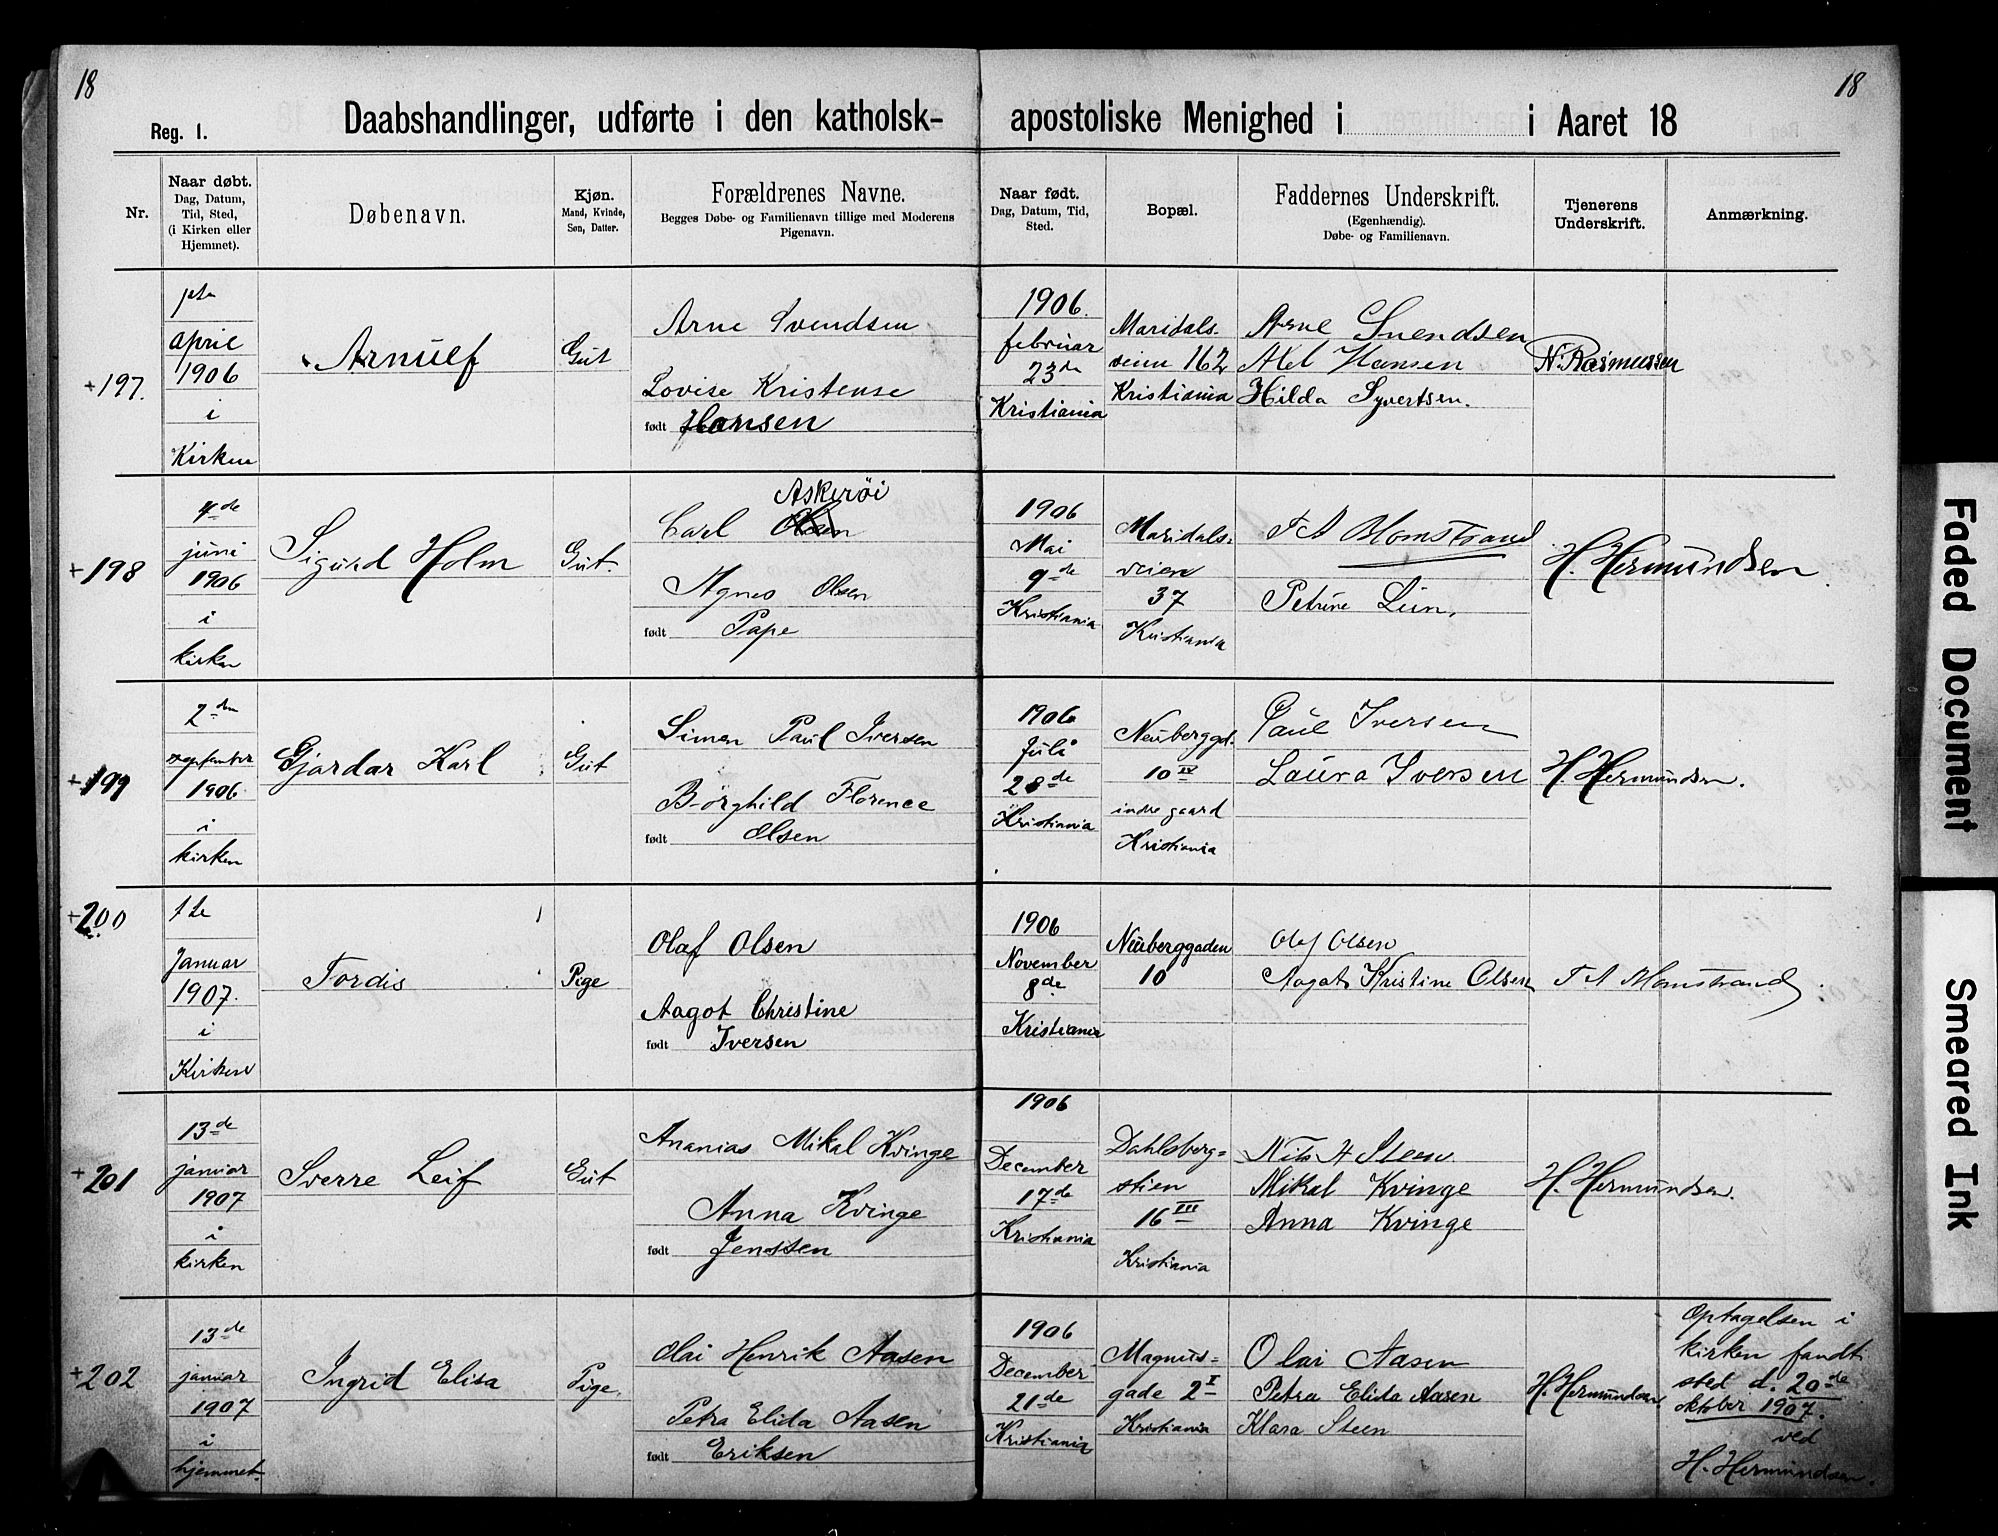 18
18
Reg. 1.
Daabshandlinger, udførte i den katholsk-apostoliske Menighed i i Aaret 18
Nr.
Naar døbt.
Dag, Datum,
Tid, Sted,
(i Kirken eller
Hjemmet).
Døbenavn.
Kjøn.
Mand, Kvinde,
Søn, Datter.
Forældrenes Navne.
Begges Døbe- og Familienavn tillige med Moderens
Pigenavn.
Naar født.
Dag, Datum, Tid,
Sted.
Bopæl.
Faddernes Underskrift.
(Egenhændig).
Døbe- og Familienavn.
Tjenerens
Underskrift.
Anmærkning.
+197.
april
1906
i
Kirken
Arnulf
Gut
Arne Svendsen
Lovise Kristense
født Hansen
1906.
februar
23de
Kristiania
Maridals-
veien 162
Kristiania
Arne Svendsen
Axel Hansen
Hilda Syvertsen.
N. Rasmussen
+198
4de
juni
1906
i
kirken
Sigurd Holm
Gut.
Askerøi
Carl Olsen
Agnes Olsen
født Pape
1906
Mai
9de
Kristiania
Maridals-
veien
37
Kristiania
F A Blomstrand
Petrine Lun.
H. Hermundsen
+199
2den
september
1906.
i
kirken
Gjardar Karl
Gut
Simen Paul Iversen
Børghild Florence
født Olsen
1906
Juli
28de
Kristiania
Neuberggd.
10 IV
indre gaard
Kristiania
Paul Iversen
Laura Iversen
H. Hermundsen.
+200
1te
Januar
1907.
i
Kirken
Tordis
Pige
Olaf Olsen
Aagot Christine
født Iversen
1906
November
8de
Kristiania
Neuberggaden
10
Olaf Olsen
Aagot Kristine Olsen
F A Blomstrand
+201
13de
januar
1907
i
kirken
Sverre Leif
Gut
Ananias Mikal Kvinge
Anna Kvinge
født Jenssen
1906
December
17de
Kristiania
Dahlsberg=
stien
16 III
Kristiania
Nils A Steen
Mikal Kvinge
Anna Kvinge
H. Hermundsen.
+202
13de
januar
1907
i
hjemmet.
Ingrid Elisa
Pige
Olai Henrik Aasen
Petra Elida Aasen
født Eriksen
1906
December
21de
Kristiania
Magnus=
gade 2 I
Kristiania
Olai Aasen
Petra Elida Aasen
Klara Steen
H. Hermundsen
Optagelsen i
kirken fandt
sted d. 20de
oktober 1907.
ved
H. Hermundsen.
Faded Document
Smeared Ink